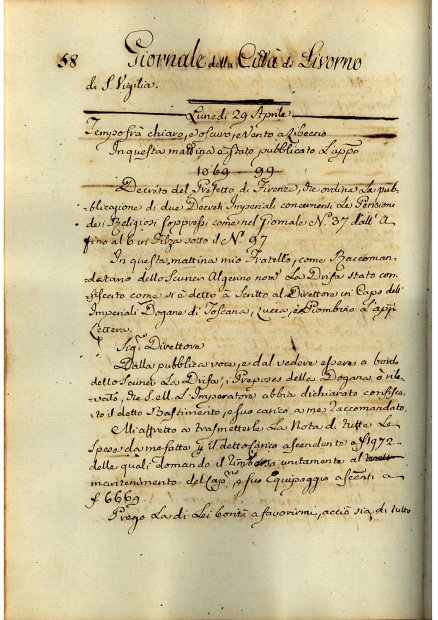 58 Giornale della Città di Livorno
di S. Vigilia.
Lunedì 29 Aprile
Tempo frà chiaro, e oscuro, e Vento a Libeccio
In questa mattina è stato pubblicato L'app.º
1069 99
Decreto del Prefetto di Firenze, che ordina La pub-
-blicazione di due Decreti Imperiali concernenti Le Pensioni
dei Religiosi soppressi come nel Giornale N.º 37 dall' A
fino al 6 in Filza sotto il N.º 97
In questa mattina mio Fratello, come Raccoman-
datario dello Scuner Algerino nom.º La Drisa stato con-
fiscato come si è detto à Scritto al Direttore in Capo dell'
Imperiali Dogane di Toscana, Lucca, e Piombino L'app.
Lettera.
Sig.r Direttore
Dalla pubblica voce, e dal vedere essere a bordo
dello Scuner La Drisa, i Preposés della Dogana à rile-
-vato, che S. M. L'Imperatore abbia dichiarato confisca-
to il detto Bastimento, e suo carico a me raccomandato.
Mi affretto a trasmetterle La Nota di tutte Le
Spese da me fatte p il detto Carico ascendente a f 1972-
delle quali domando il rimborso unitamente al
mantenimento del Cap.no e suo Equipaggio ascenti a
f 6669
Prego La di Lei bontà a favorirmi, acciò sia di tutto